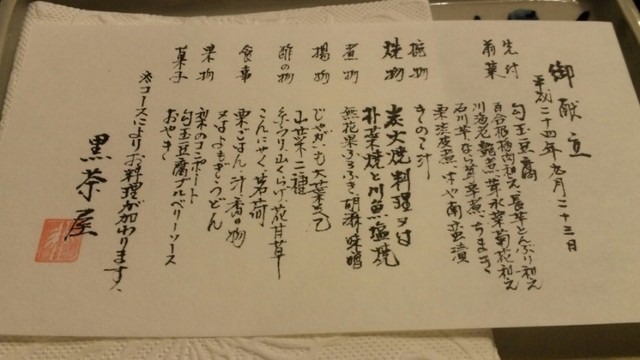 御献立
平成二十四年九月二十三日
先付 勾玉豆腐
前菜 百合根梅肉和え 長芋とんぶり和え
川海老艶煮 芽水菜菊花和え
石川芋なら茸 ちまき
栗渋皮煮 はや南蛮漬
椀物 きのこ汁
焼物 炭火焼料理又は
朴葉焼と川魚塩焼
煮物 無花果ふろふき胡麻味噌
揚物 じゃがいも大葉
山菜二種
酢の物 糸うり 山くらげ 花甘草
こんにゃく 茗荷
食事 栗ごはん 汁 香の物
又はよもぎうどん
果物 梨のコンポート
勾玉豆腐ブルベリーソース
菓子 おやき
※コースによりお料理が加わります。
黒茶屋